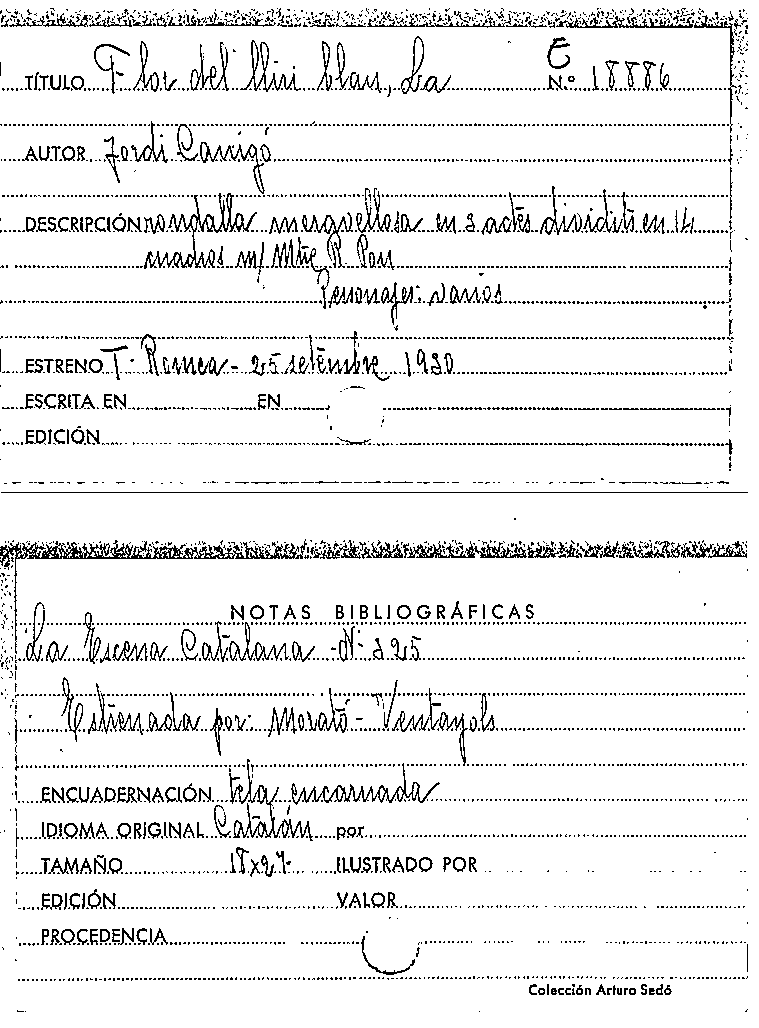 E
TÍTULO Flor del lliri blau, La N.º 18886
AUTOR Jordi Canigó
DESCRIPCIÓN rondalla meravellosa en 3 actes dividits en 14
cuadros m/ Mtre R. Pou
Personajes: varios
ESTRENO T. Romea - 25 setembre 1930
ESCRITA EN EN
EDICIÓN
NOTAS BIBLIOGRÁFICAS
La Escena Catalana - Nº 325
Estrenada por: Morató - Ventayols
ENCUADERNACIÓN tela encarnada
IDIOMA ORIGINAL Catalán por
TAMAÑO 18x27- ILUSTRADO POR
EDICIÓN VALOR
PROCEDENCIA
Colección Arturo Sedó